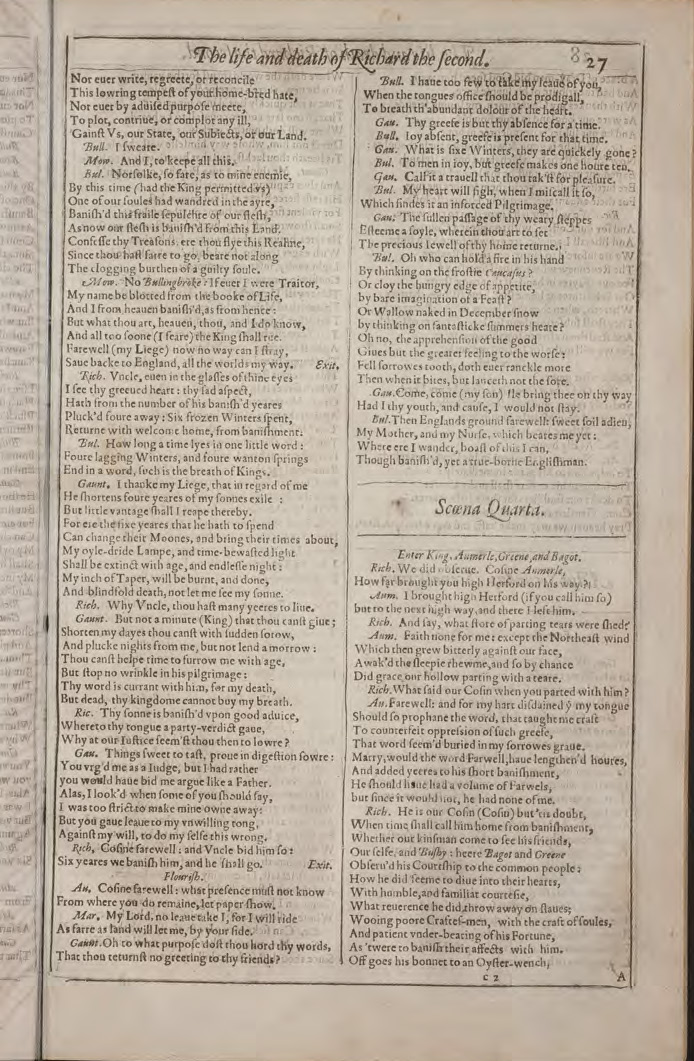 The life and death of Richard the second.
27
Nor euer write, regreete, or reconcile
This lowring tempest of your home-bred hate,
Nor euer by aduised purpose meete,
To plot, contriue, or complot any ill,
'Gainst Vs, our State, our Subiects, or our Land.
Bull. I sweare.
Mow. And I, to keepe all this.
Bul. Norfolke, so fare, as to mine enemie,
By this time (had the King permitted vs)
One of our soules had wandred in the ayre,
Banish'd this fraile sepulchre of our flesh,
As now our flesh is banish'd from this Land.
Confesse thy Treasons, ere thou flye this Realme,
Since thou hast farre to go, beare not along
The clogging burthen of a guilty soule.
Mow. No Bullingbroke: If euer I were Traitor,
My name be blotted from the booke of Life,
And I from heauen banish'd, as from hence:
But what thou art, heauen, thou, and I do know,
And all too soone (I feare) the King shall rue.
Farewell (my Liege) now no way can I stray,
Saue backe to England, all the worlds my way. Exit.
Rich. Vncle, euen in the glasses of thine eyes
I see thy greeued heart: thy sad aspect,
Hath from the number of his banish'd yeares
Pluck'd foure away: Six frozen Winters spent,
Returne with welcome home, from banishment.
Bul. How long a time lyes in one little word:
Foure lagging Winters, and foure wanton springs
End in a word, such is the breath of Kings.
Gaunt. I thanke my Liege, that in regard of me
He shortens foure yeares of my sonnes exile:
But little vantage shall I reape thereby.
For ere the sixe yeares that he hath to spend
Can change their Moones, and bring their times about,
My oyle-dride Lampe, and time-bewasted light
Shall be extinct with age, and endlesse night:
My inch of Taper, will be burnt, and done,
And blindfold death, not let me see my sonne.
Rich. Why Vncle, thou hast many yeeres to liue.
Gaunt. But not a minute (King) that thou canst giue;
Shorten my dayes thou canst with sudden sorow,
And plucke nights from me, but not lend a morrow:
Thou canst helpe time to furrow me with age,
But stop no wrinkle in his pilgrimage:
Thy word is currant with him, for my death,
But dead, thy kingdome cannot buy my breath.
Ric. Thy sonne is banish'd vpon good aduice,
Whereto thy tongue a party-verdict gaue,
Why at our Iustice seem'st thou then to lowre?
Gau. Things sweet to tast, proue in digestion sowre:
You vrg'd me as a Iudge, but I had rather
you would haue bid me argue like a Father.
Alas, I look'd when some of you should say,
I was too strict to make mine owne away:
But you gaue leaue to my vnwilling tong,
Against my will, to do my selfe this wrong.
Rich. Cosine farewell: and Vncle bid him so:
Six yeares we banish him, and he shall go. Exit.
Flourish.
Au. Cosine farewell: what presence must not know
From where you do remaine, let paper show.
Mar. My Lord, no leaue take I, for I will ride
As farre as land will let me, by your side.
Gaunt. Oh to what purpose dost thou hord thy words,
That thou returnst no greeting to thy friends?
Bull. I haue too few to take my leaue of you,
When the tongues office should be prodigall,
To breath th'abundant dolour of the heart.
Gau. Thy greefe is but thy absence for a time.
Bull. Ioy absent, greefe is present for that time.
Gau. What is sixe Winters, they are quickely gone?
Bul. To men in ioy, but greefe makes one houre ten.
Gau. Call it a trauell that thou tak'st for pleasure.
Bul. My heart will sigh, when I miscall it so,
Which findes it an inforced Pilgrimage.
Gau. The sullen passage of thy weary steppes
Esteeme a soyle, wherein thou art to set
The precious Iewell of thy home returne.
Bul. Oh who can hold a fire in his hand
By thinking on the frostie Caucasus?
Or cloy the hungry edge of appetite,
by bare imagination of a Feast?
Or Wallow naked in December snow
by thinking on fantasticke summers heate?
Oh no, the apprehension of the good
Giues but the greater feeling to the worse:
Fell sorrowes tooth, doth euer ranckle more
Then when it bites, but lanceth not the sore.
Gau. Come, come (my son) Ile bring thee on thy way
Had I thy youth, and cause, I would not stay.
Bul. Then Englands ground farewell: sweet soil adieu,
My Mother, and my Nurse, which beares me yet:
Where ere I wander, boast of this I can,
Though banish'd, yet a true-borne Englishman.
Scœna Quarta.
Enter King, Aumerle, Greene, and Bagot.
Rich. We did obserue. Cosine Aumerle,
How far brought you high Herford on his way?
Aum. I brought high Herford (if you call him so)
but to the next high way, and there I left him.
Rich. And say, what store of parting tears were shed?
Aum. Faith none for me: except the Northeast wind
Which then grew bitterly against our face,
Awak'd the sleepie rhewme, and so by chance
Did grace our hollow parting with a teare.
Rich. What said our Cosin when you parted with him?
Au. Farewell: and for my hart disdained ÿ my tongue
Should so prophane the word, that taught me craft
To counterfeit oppression of such greefe,
That word seem'd buried in my sorrowes graue.
Marry, would the word Farwell, haue lengthen'd houres,
And added yeeres to his short banishment,
He should haue had a volume of Farwels,
but since it would not, he had none of me.
Rich. He is our Cosin (Cosin) but 'tis doubt,
When time shall call him home from banishment,
Whether our kinsman come to see his friends,
Our selfe, and Bushy: heere Bagot and Greene
Obseru'd his Courtship to the common people:
How he did seeme to diue into their hearts,
With humble, and familiar courtesie,
What reuerence he did throw away on slaues;
Wooing poore Craftes-men, with the craft of soules,
And patient vnder-bearing of his Fortune,
As 'twere to banish their affects with him.
Off goes his bonnet to an Oyster-wench,
c 2
A